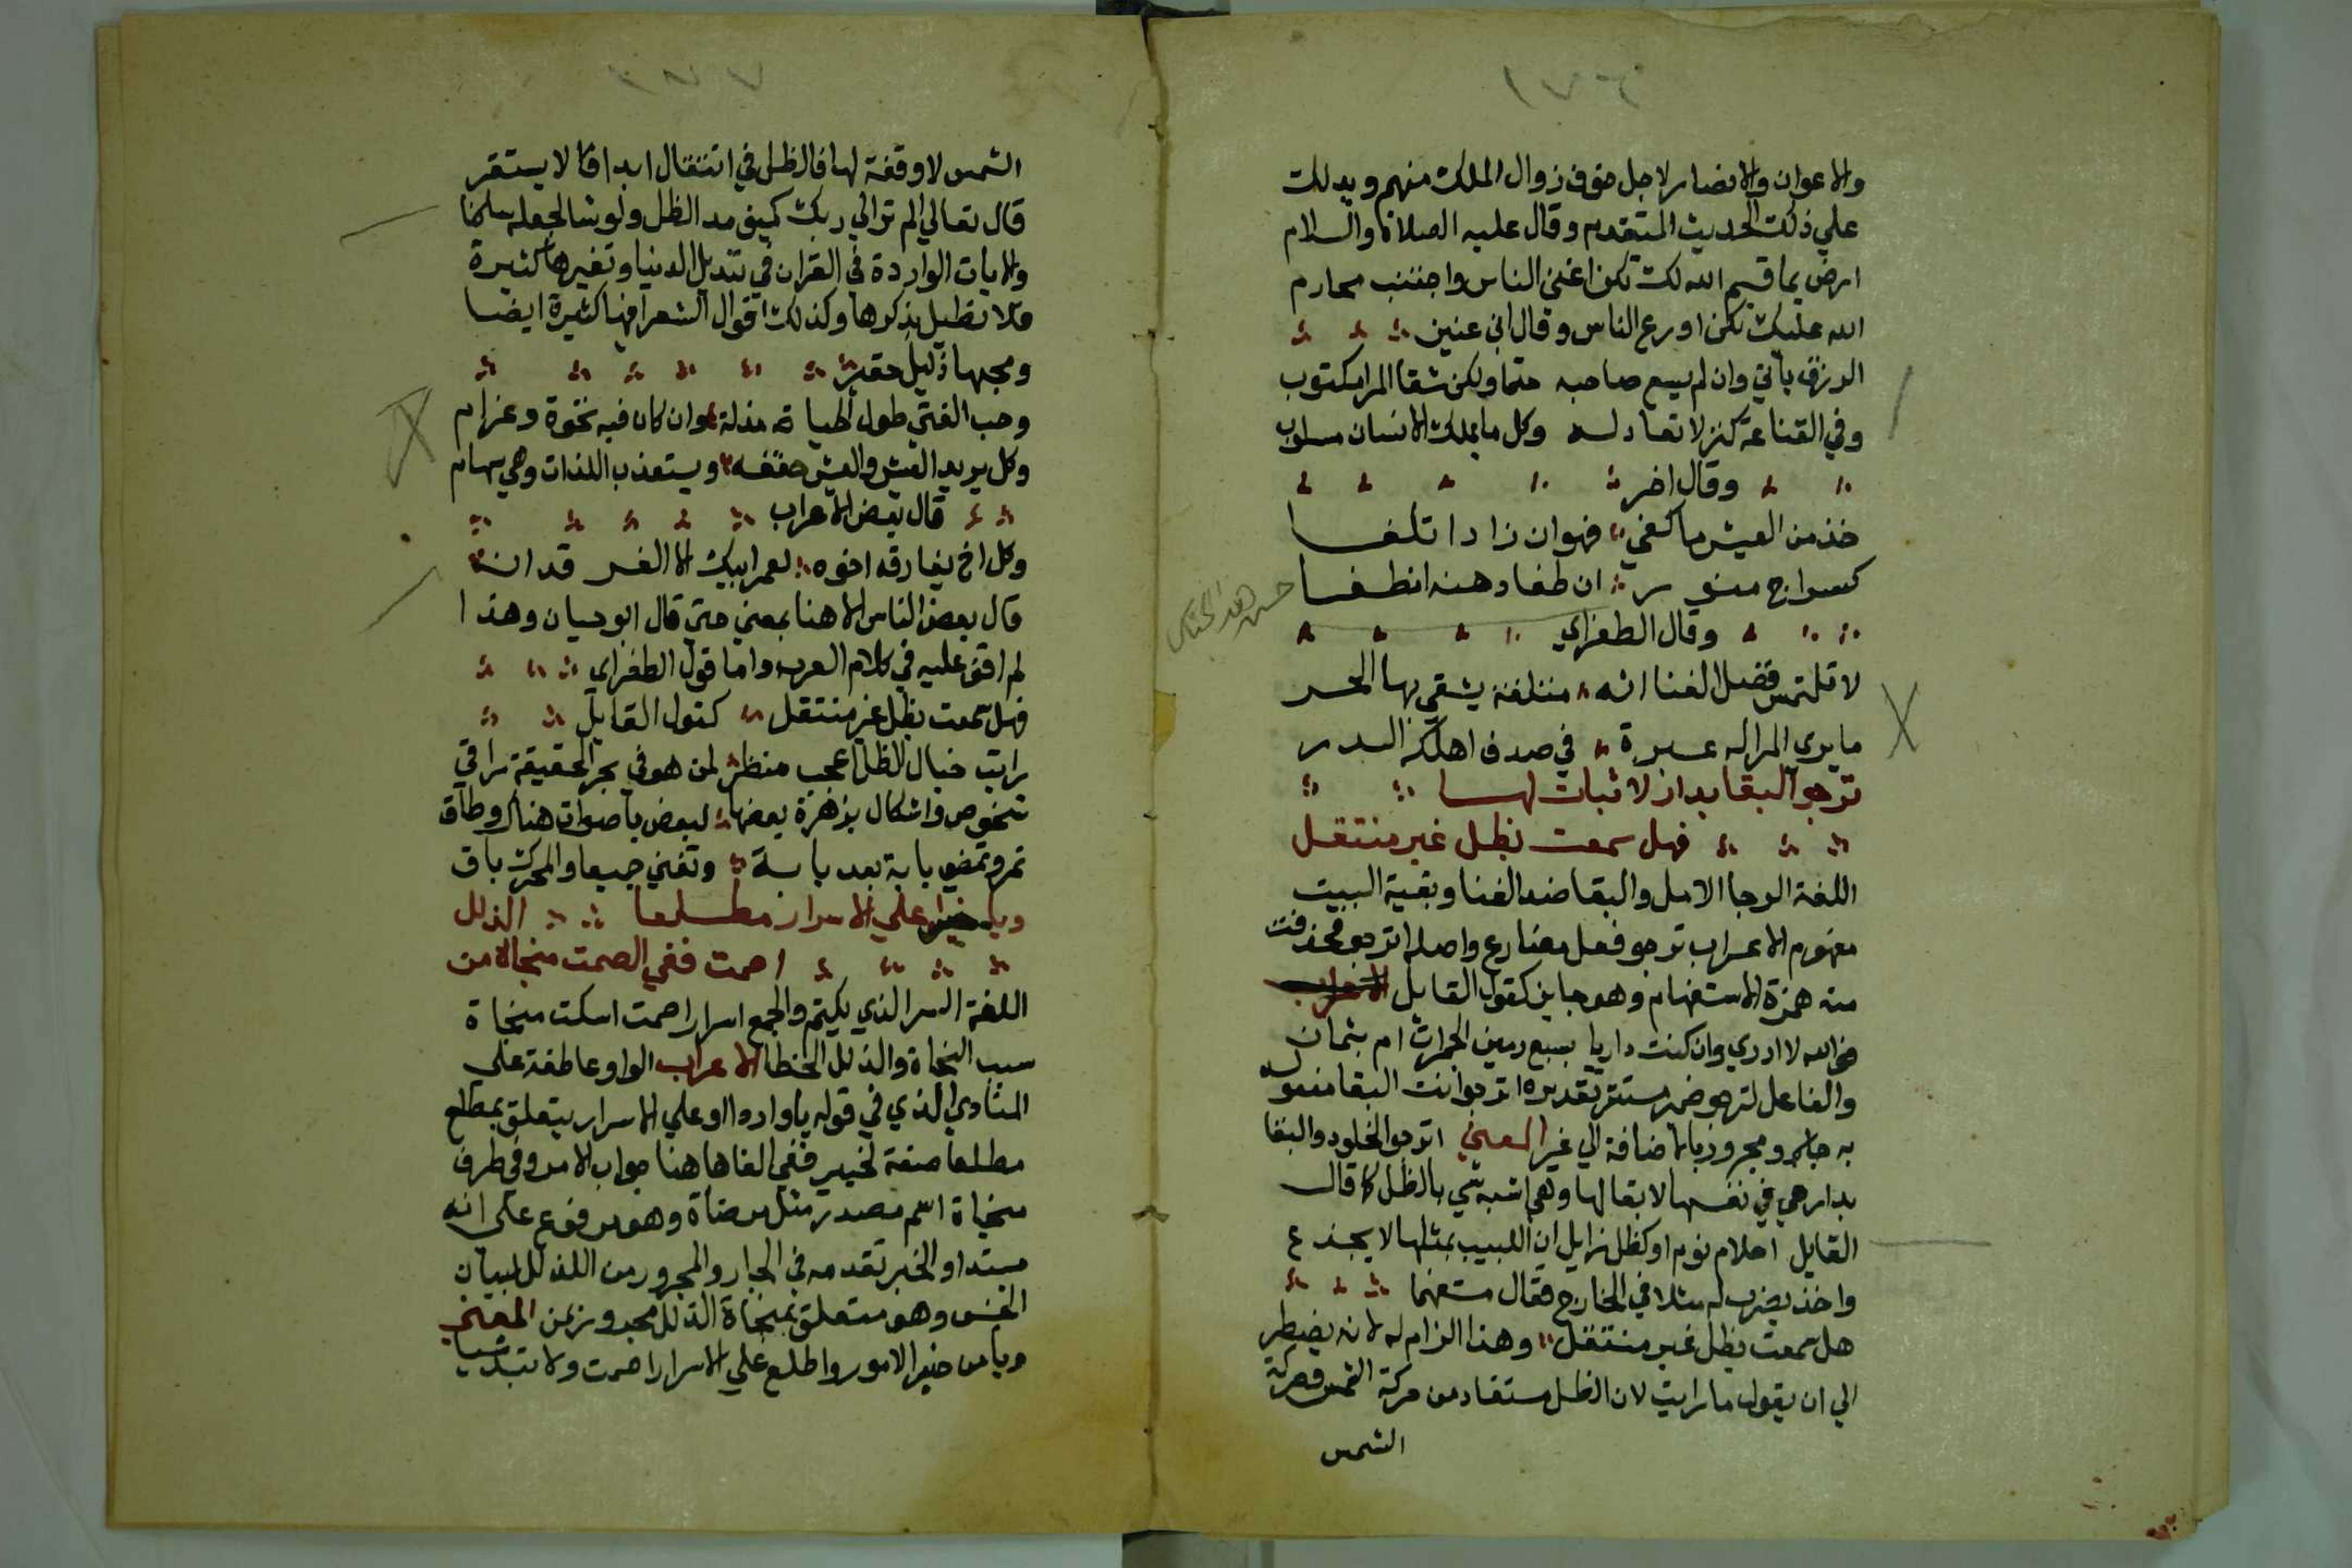 والاعوان والانصار لاجل خوف زوال الملك منهم ويدلك
علي ذلك الحديث المتقدم وقال عليه الصلاة والسلام
ارض بما قسم الله لك تكن اغني الناس واجتنب محارم
الله عليك تكن اورع الناس وقال ابن عنين
الرزق ياتي وان لم يسع صاحبه حتما ولكن شقا المرا مكتوب
وفي القناعة كنز لا نفاد له وكل ما يملك الانسان مسلوب
وقال اخر
خذ من العيش ما كفي فهو ان زادا تلفا
كسراج منور ان طفا دهنه انطفا
حسن هذا الجناس
وقال الطغراي
لا تلتمس فضل الغنا انه متلفة يشقي بها الحر
ما يري المرا له عبرة في صدف اهلكه الدر
ترجو البقا بدار لا ثبات لها
فهل سمعت بظل غير منتقل
اللغة الرجا الامل والبقا ضد الفنا وبقية البيت
مفهوم الاعراب ترجو فعل مضارع واصله اترجو فحذفت
منه همزة الاستفهام وهو جايز كقول القايل
فوالله لا ادري وان كنت داريا بسبع رمين الجمرات ام بثمان
والفاعل لترجو ضمير مستتر تقديره اترجو انت البقا مفعول
به جار ومجرور بالاضافة الي غير المعني اترجو الخلود والبقا
بدار هي في نفسها لا بقا لها وهي اشبه شي بالظل كما قال
القايل احلام نوم او كظل زايل ان اللبيب بمثلها لا يخدع
واخذ يضرب له مثلا في الخارج فقال مستفهما
هل سمعت بظل غير منتقل وهذا الزام له لانه يضطر
الي ان يقول ما رايت لان الظل مستفاد من حركة الشمس وحركة
الشمس
الشمس لا وقفة لها فالظل في انتقال ابدا لا يستقر
قال تعالي الم تر الي ربك كيف مد الظل ولو شا لجعله ساكنا
والايات الواردة في القران في تبديل الدنيا وتغيرها كثيرة
فلا نطيل بذكرها وكذلك اقوال الشعرا فيها كثيرة ايضا
ومحبها ذليل حقير
وحب الفتي طول الحياة مذلة وان كان فيه نخوة وعزام
وكل يريد العيش والعيش حتفه ويستعذب اللذات وهي سهام
قال بعض الاعراب
وكل اخ يفارقه اخوه لعمر ابيك الا الفرقدان
قال بعض الناس الا هنا بمعني حتي قال ابو حيان وهذا
لم اقف عليه في كلام العرب واما قول الطغراي
فهل سمعت بظل غير منتقل كقول القايل
رايت خيال الظل اعجب منظر لمن هو في بحر الحقيقة راقي
شخوص واشكال بعضها لبعض باصوات هناك وطاق
تمر وتمضي بابة بعد بابة وتفني جميعا والمحرك باق
ويا خبيرا علي الاسرار مطلعا
اصمت ففي الصمت منجاة من الزلل
اللغة السر الذي يكتم والجمع اسرار اصمت اسكت منجاة
سبب النجاة والزلل الخطا الاعراب الواو عاطفة علي
المنادي الذي في قوله يا واردا وعلي الاسرار يتعلق بمطلع
مطلعا صفة لخبير ففي الفا هاهنا جواب الامر وفي ظرف
منجاة اسم مصدر مثل مرضاة وهو مرفوع علي انه
مبتدا والخبر تقدمه في الجار والمجرور من الزلل لبيان
الجنس وهو متعلق بمنجاة الزلل مجرور بمن المعني
ويا من خبر الامور واطلع علي الاسرار اصمت ولا تبد شيا